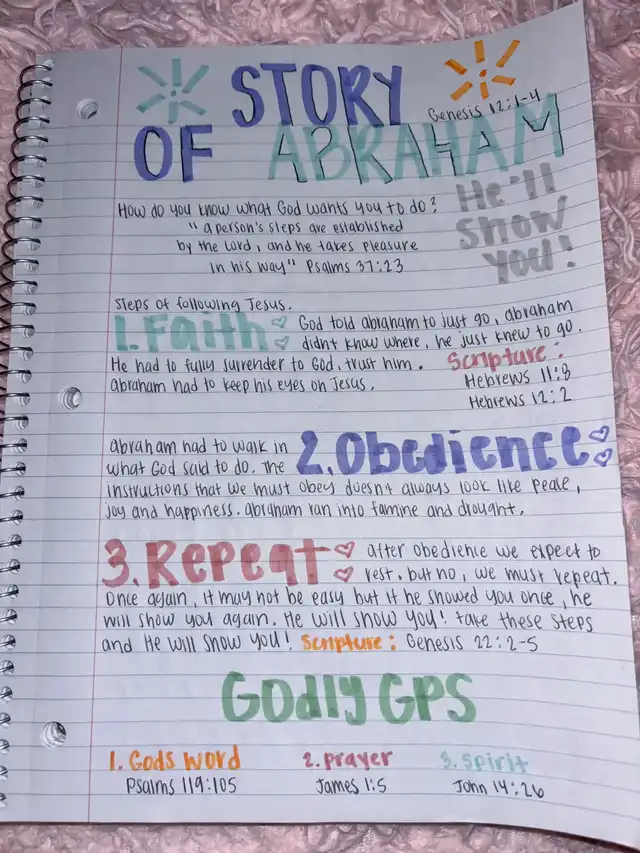 STORY
OF ABRAHAM
Genesis 12:1-4
He'll
Show
You!
How do you know what God wants you to do?
"a person's steps are established
by the Lord, and he takes pleasure
in his way" Psalms 37:23
Steps of following Jesus.
1. Faith
God told abraham to just go, abraham
didn't know where, he just knew to go.
He had to fully surrender to God, trust him.
abraham had to keep his eyes on Jesus.
Scripture:
Hebrews 11:8
Hebrews 12:2
abraham had to walk in
what God said to do. The
2. Obedience
instructions that we must obey doesnt always look like peace,
joy and happiness. abraham ran into famine and drought.
3. Repeat
after obedience we expect to
rest. but no, we must repeat.
Once again, it may not be easy but if he showed you once, he
will show you again. He will show you! take these steps
and He will show you! Scripture: Genesis 22:2-5
Godly GPS
1. Gods word
Psalms 119:105
2. prayer
James 1:5
3. Spirit
John 14:26